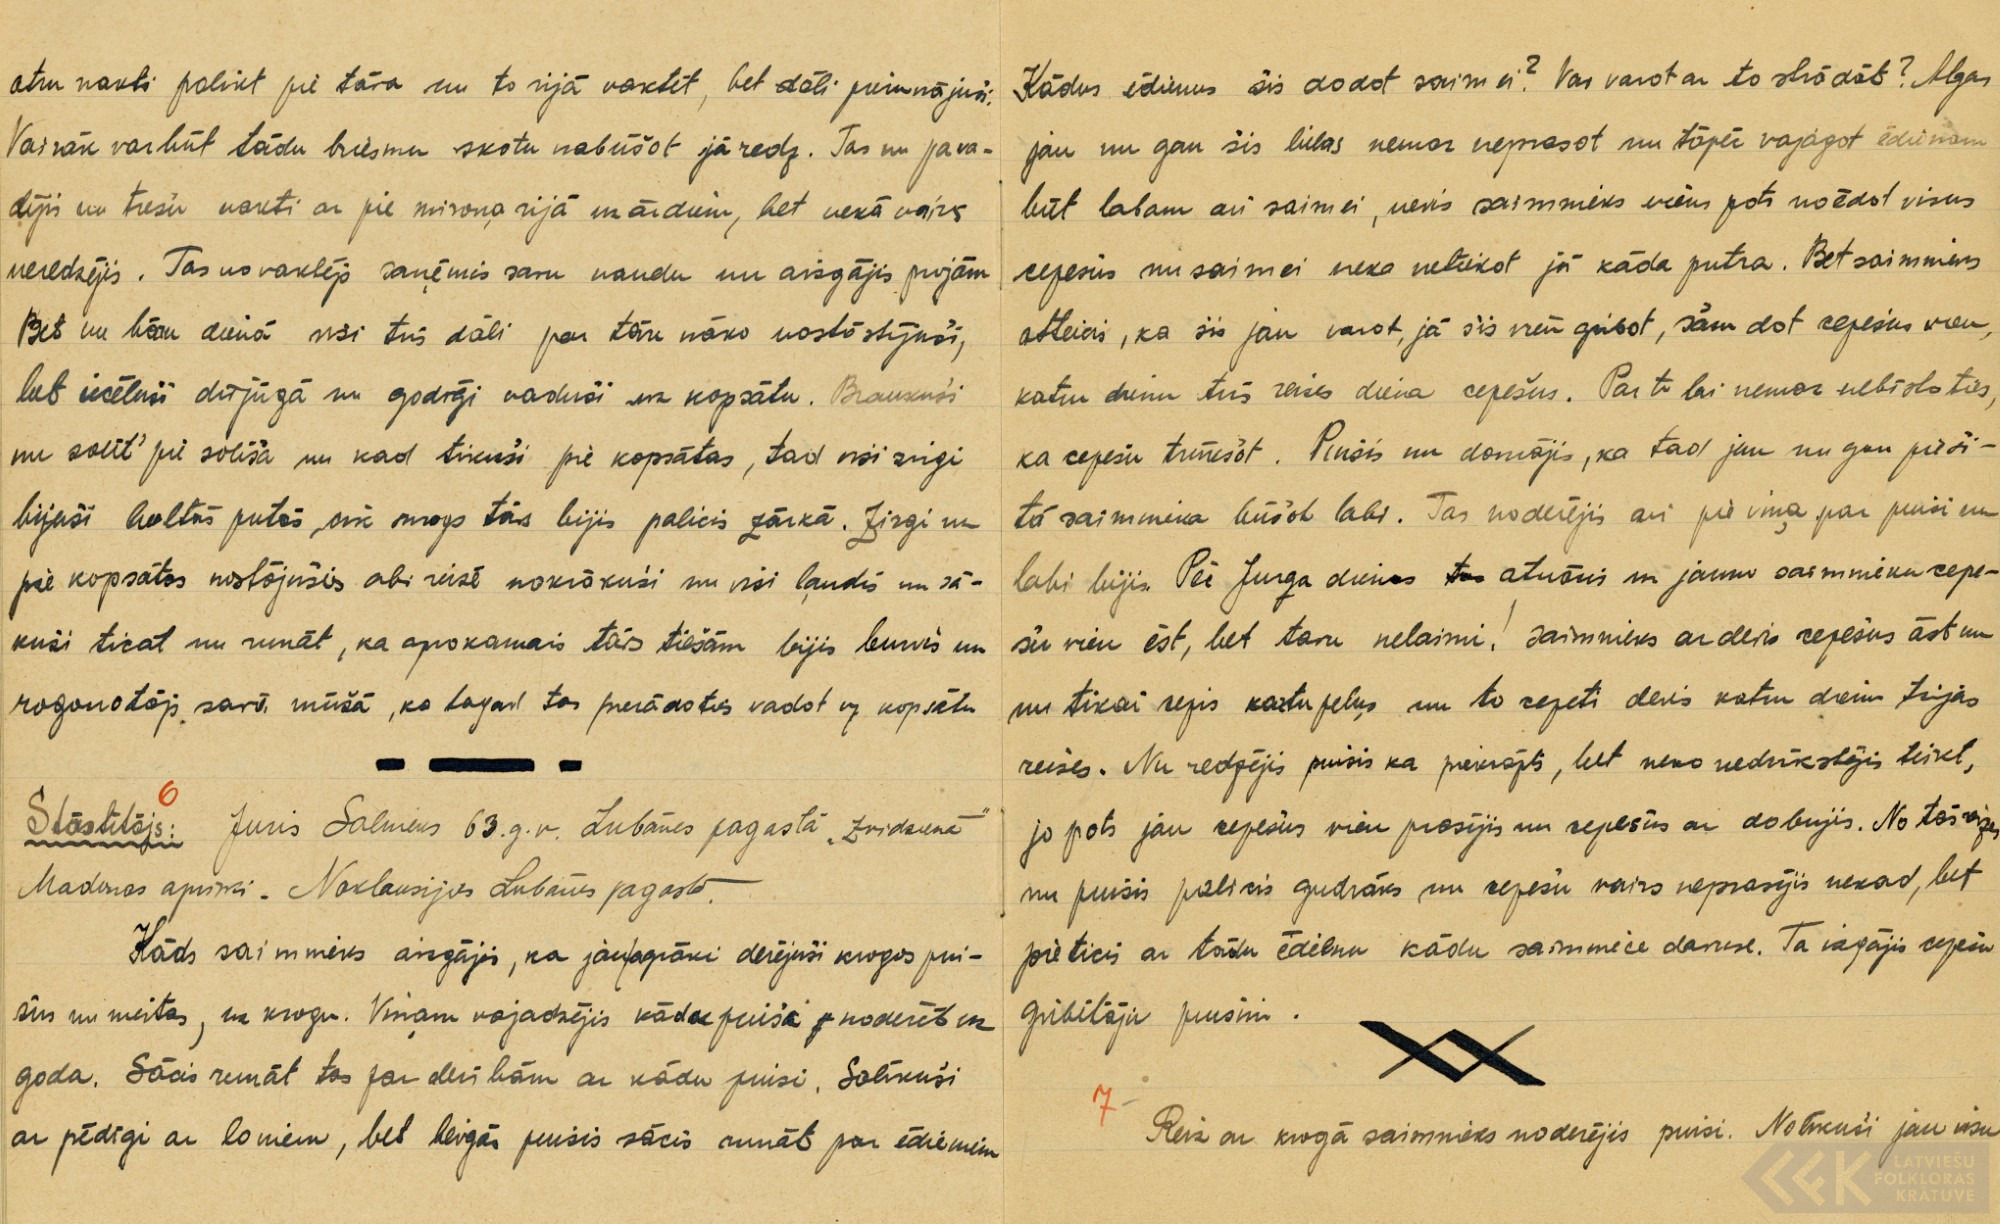 otru nakti palikt pie tāva un to rijā vaktēt, bet dāli pierunājuši.
Vairāk varbūt tādu briesmu skatu nabūšot jāredz. Tas nu pava-
dījis un trešu nakti ar pie miroņa rijā uz ārdiem, bet nekā vairs
neredzējis. Tas novaktējs saņēmis savu naudu un aizgājis projām
Bet nu bāru dienā visi trīs dāli par tāvu nāko nostāstījuši,
bet iecēluši divjūgā un godīgi vaduši uz kopsātu. Braukuši
nu solīt' pie solīša un kad tikuši pie kopsātas, tad visi zirgi
bijuši baltās putās, tik smags tāvs bijis palicis zārkā. Zirgi nu
pie kopsātas nostājušies abi reizē nokrākuši nu visi ļaudis un sā-
kuši ticat un runāt, ka aprokamais tāvs tiešām bijis burvis un
roganotājs savā mūžā, ko tagad tas pierādoties vadot uz kopsātu
6
Stāstītājs: Juris Salmens 63.g.v. Lubānes pagastā „Zvidzienā"
Madonas apriņķi - Noklausijies Lubānes pagastā.
Kāds saimnieks aizgājis, ka jau agrāki derējuši krogos pui-
šus un meitas, uz krogu. Viņam vajadzējis kādu puisi noderēt uz
goda. Sācis runāt tas par derībām ar kādu puisi. Salīkuši
ar pēdīgi ar loniem, bet beigās puisis sācis runāt par ēdieniem
Kādus ēdienus šis dodot saimei? Vai varot ar to strādāt? Algas
jau nu gan šis lielas nemaz neprasot nu tāpēc vajagot ēdienam
būt labam ari saimei, nevis saimnieks viens pats noēdot visus
cepešus nu saimei neka netiekot jā kāda putra. Bet saimnieks
atteicis, ka šis jau varot, jā šis vien gribot, šam dot cepešus vien,
katru dienu trīs reizes diena cepešus. Par to lai nemaz nebīstoties,
ka cepešu trūkšot. Puisis nu domājis, ka tad jau nu gan pie ši-
tā saimnieka būšot labi. Tas noderējis ari pie viņa par puisi un
labi bijis. Pēc Jurga dienas atnācis uz jauno saimnieku cepe-
šu vien ēst, bet tavu nelaimi! Saimnieks ar devis cepešus āst un
nu tikai cepis kartupeļus un to cepeti devis katru dienu trijās
reisēs. Nu redzējis puisis ka piekrāpts, bet neko nedrīkstējis teikt,
jo pats jau cepešus vien prasījis un cepešus ar dabujis. No tās reizes
nu puisis palicis gudrāks un cepešu vairs neprasījis nekad, bet
pieticis ar tādu ēdienu kādu saimniece devuse. Ta izgājis cepešu
gribētāju puisim.
7
Reiz ar krogā saimnieks noderējis puisi. Nolīkuši jau visu
LATVIEŠU
FOLKLORAS
KRĀTUVE